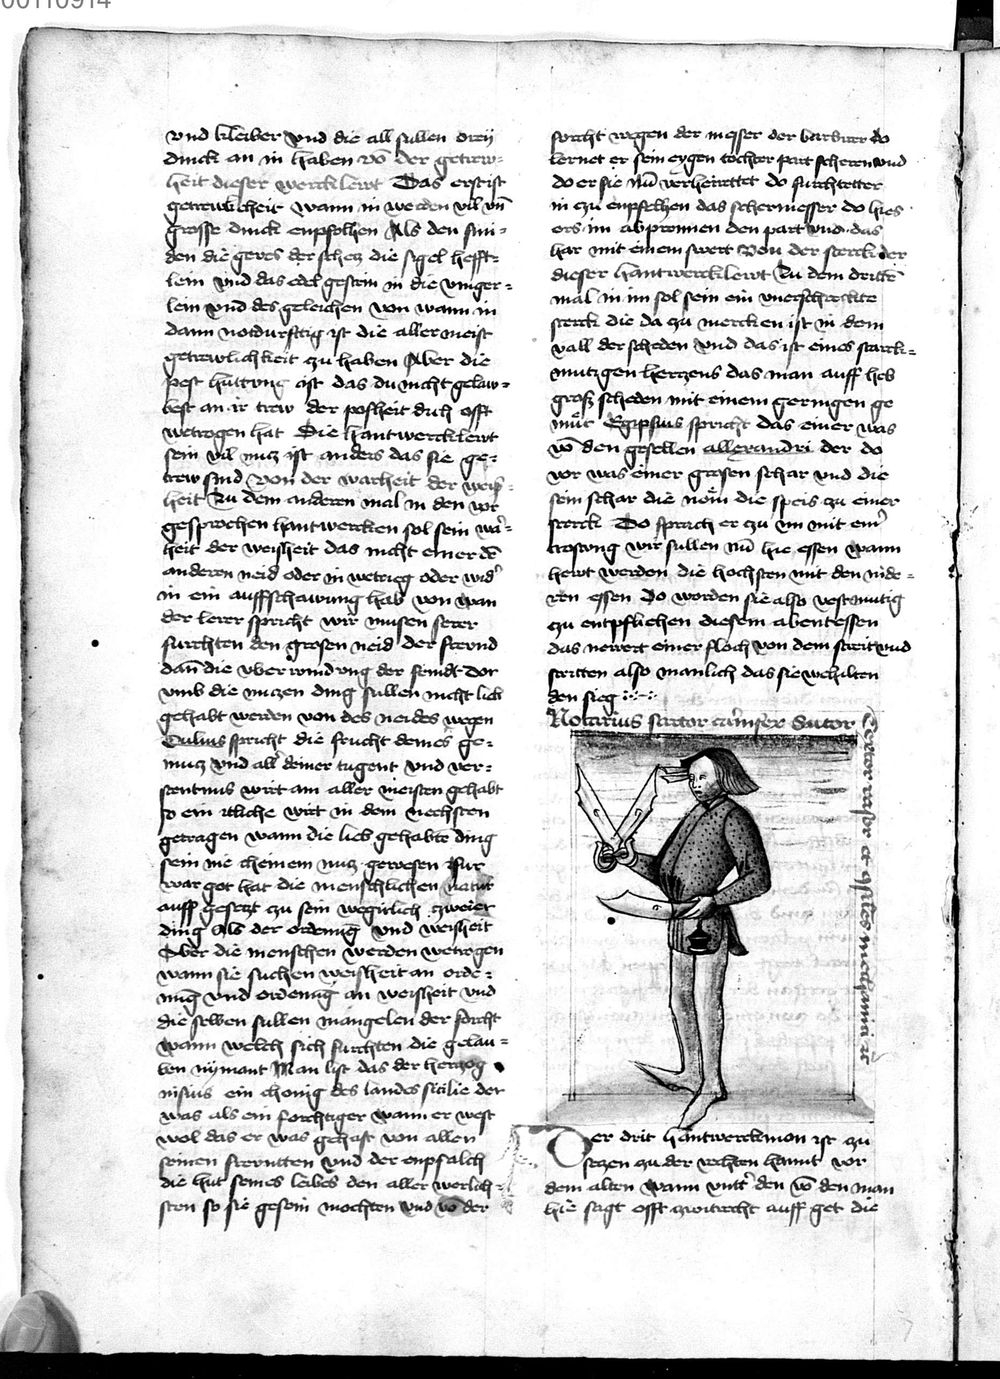 00110914
vnd kleiber vnd die all sullen drey
dinck an in haben võ der getrew=
heit dieser werckleut Das erst ist
getrewkheit wann in werden vil vñ
grosse dinck enpfolhen Als den smi=
den die geres der schetz die sigel hefft=
lein vnd das edel gestein in die vinger=
lein vnd des geleichen von wann in
dann notdurfttig ist die allermeist
getrewlichkeit zu haben Aber die
pest huttung ist das du nicht gelaw=
best an ir trew der posheit dich offt
wetrogen hat Die hantwerckleut
sein vil nucz ist anders das sie ge=
trew sind von der warheit der weis=
heit Zu dem anderen mal in den vor
gesprochen hantwercken sol sein wa=
heit der weisheit das nicht einer dē
anderen neid oder in wetrieg oder wid'
in ein auffschawung hab von wan
der lerer spricht wir musen serer
furchten den grosen neid der freund
dañ die vberwindung der feindt dor
vmb die nuczen ding sullen nicht lieb
gehabt werden von des neides wegen
Tulius spricht die frucht deines ge=
nucz vnd all deiner tugent vnd ver=
stentnus wirt am aller meisten gehabt
so ein itliche wirt in dem nechsten
getragen wann die lieb gehabte ding
sein nie cheinem nucz gewesen Fur
war got hat die menschlichen natur
auff gesetzt zu sein wegirlich zweier
ding Als der ordenug vnd weisheit
Aber die menschen werden wetrogen
wann sie suchen weisheit an orde=
nug vnd ordenug an weisheit vnd
die selben sullen mangelen der forcht
wann welch sich furchten die gelau=
ben nymant Man list das der herzog
nisius ein chonig des landes sicilie der
was als ein forchtiger wann er west
wol das er was gehast von allen
seinen freunten vnd der enpfalch
die hut seines leibes den aller werlich=
sten so sie gesein mochten vnd võ der
forcht wegen der messer der barbirer do
lernet er sein eygen tochter part scheren vnd
do er sie nũ verheirettet do furchtetter
in czu enpfelhen das schermesser do hies
ers im abprennen den part vnd das
har mit einem swert Von der sterck der
dieser hantwerckleut Zu dem dritte
mal in im sol sein ein vnerschrockte
sterck die da zu mercken ist in dem
vall der scheden vnd das ist eines starck=
mutigen herczens das man auff heb
gros scheden mit einem geringen ge
mut Egipsius spricht das einer was
võ den gesellen allexandri der do
vor was einer grosen schar vnd die
sein schar die nom die speis zu einer
sterck Do sprach er zu im mit einr
trostung wir sullen nũ hie essen wann
hewt werden die hochsten mit den nide=
ren essen Do worden sie also vestmutig
zu entpfliehen diesem abentessen
das newert einer floch von dem streit vnd
striten also manlich das sie wehilten
den sieg
Notarius sartor carnifex Sutor
Der drit hantwerckmon ist zu
seczen zu der rechten hannt vor
dem alten wann vntt' den võ den man
hie sagt offt zwitrecht auff get die